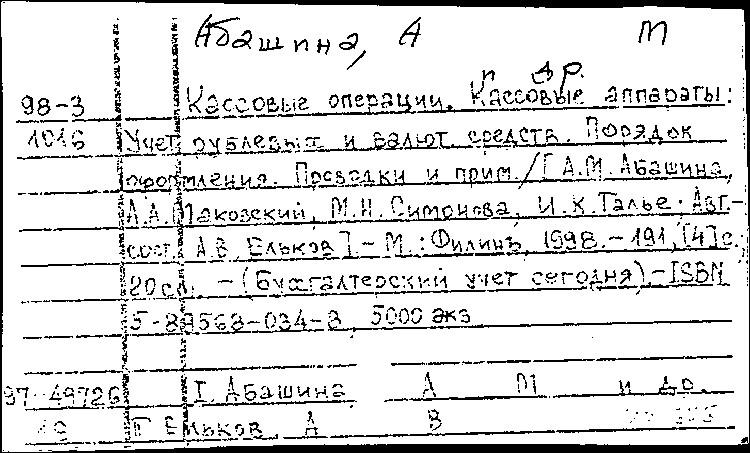 Абашина, А М
и др.
98-3 Кассовые операции. Кассовые аппараты:
1016 Учет рублевых и валют. средств. Порядок
оформления. Проводки и прим. / [А.М. Абашина,
А.А. Маковский, М.Н. Симонова, И.К. Талье; Авт.-
сост. А.В. Ельков]. - М.: Филинъ, 1998. - 191, [4] с.
20 см. - (Бухгалтерский учет сегодня). - ISBN
5-89568-034-8, 5000 экз
97-49726 I. Абашина А М и др.
Ельков А В